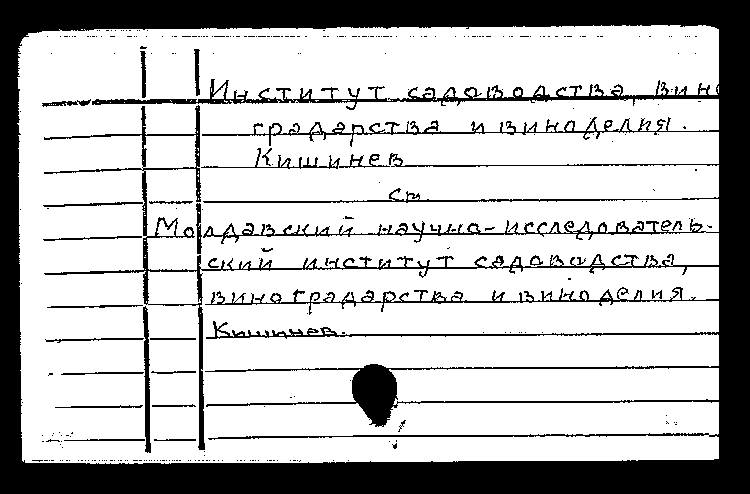 Институт садоводства, вино
градарства и виноделия.
Кишинев
см.
Молдавский научно-исследователь-
ский институт садоводства,
виноградарства и виноделия.
Кишинев.